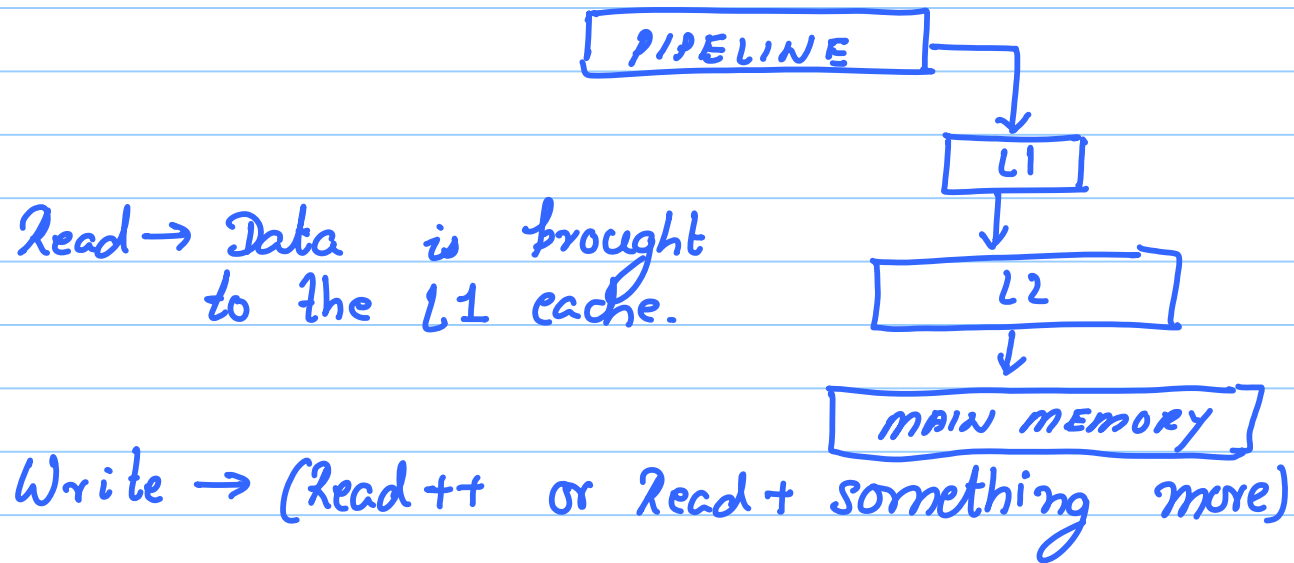 PIPELINE
L1
Read → Data is brought
to the L1 cache.
L2
MAIN MEMORY
Write → (Read++ or Read + something more)